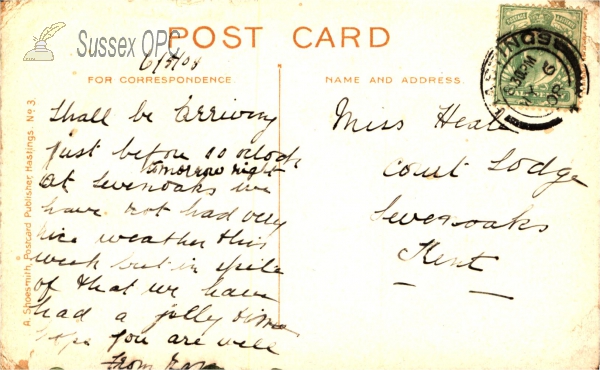 Sussex OPC
POST CARD
6/5/08
FOR CORRESPONDENCE.
NAME AND ADDRESS.
Shall be Arriving
just before 10 oclock
tomorrow night
at Sevenoaks we
have not had very
nice weather this
week but in spite
of that we have
had a jolly time
hope you are well
from
Miss Heale
Court Lodge
Sevenoaks
Kent
A. Shoesmith, Postcard Publisher, Hastings. No 3